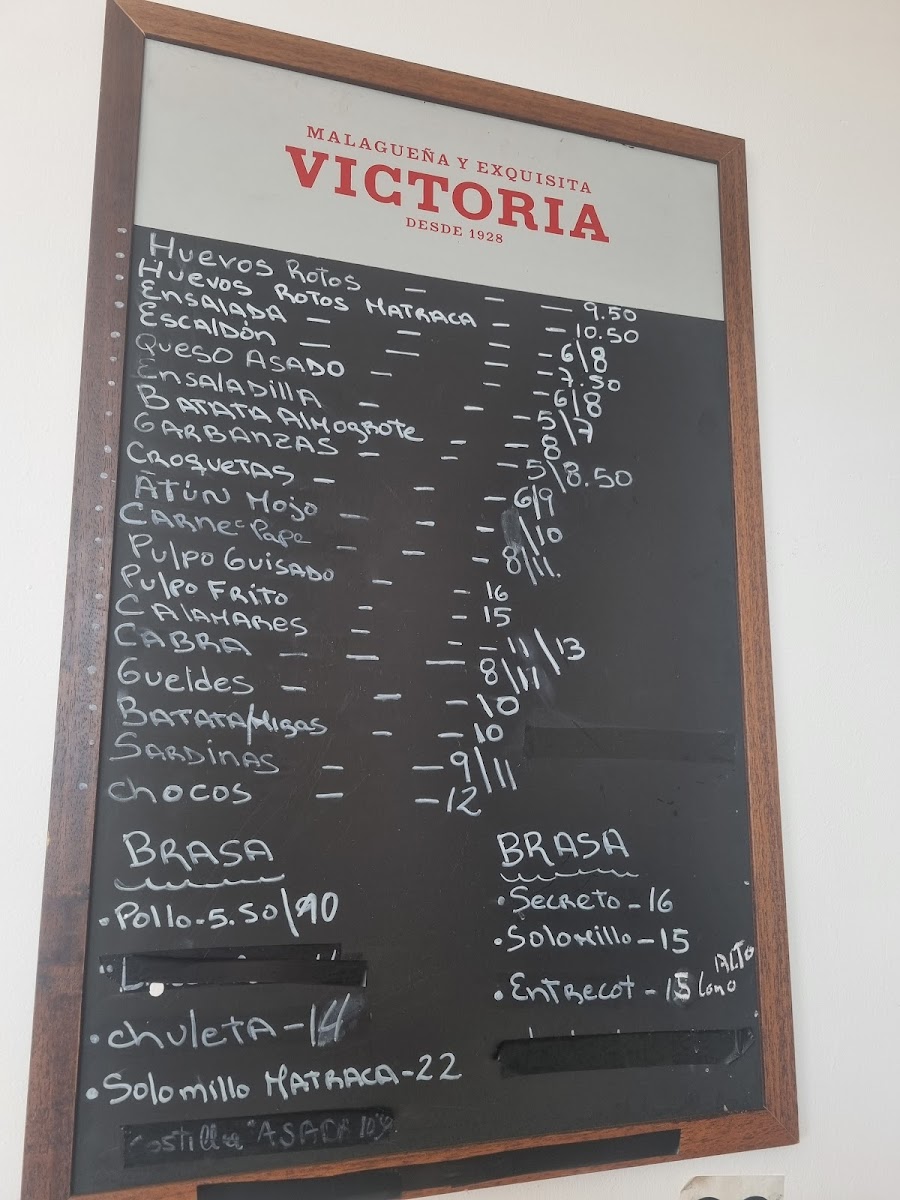 MALAGUEÑA Y EXQUISITA
VICTORIA
DESDE 1928
HUEVOS ROTOS — — — 9.50
HUEVOS ROTOS MATRACA — — 10.50
ENSALADA — — — — 6/8
ESCALDÓN — — — — 7.50
QUESO ASADO — — — 6/8
ENSALADILLA — — — 5/7
BATATA AlMogrote — — 8
GARBANZAS — — — 5/8.50
CROQUETAS — — — 6/9
ATÚN Mojo — — — /10
CARNE Papa — — — 8/11.
Pulpo Guisado — — 16
Pulpo FRito — — 15
CAlAMARES — — — 11/13
CABRA — — — 8/11
Gueldes — — — 10
BATATA/Migas — — 10
SARDINAS — — 9/11
chocos — — 12
BRASA
• Pollo - 5.50/90
• chuletA - 14
• Solomillo MATRACA - 22
Costilla ASADA 10
BRASA
• Secreto - 16
• Solomillo - 15
• Entrecot - 15 lomo ALTO